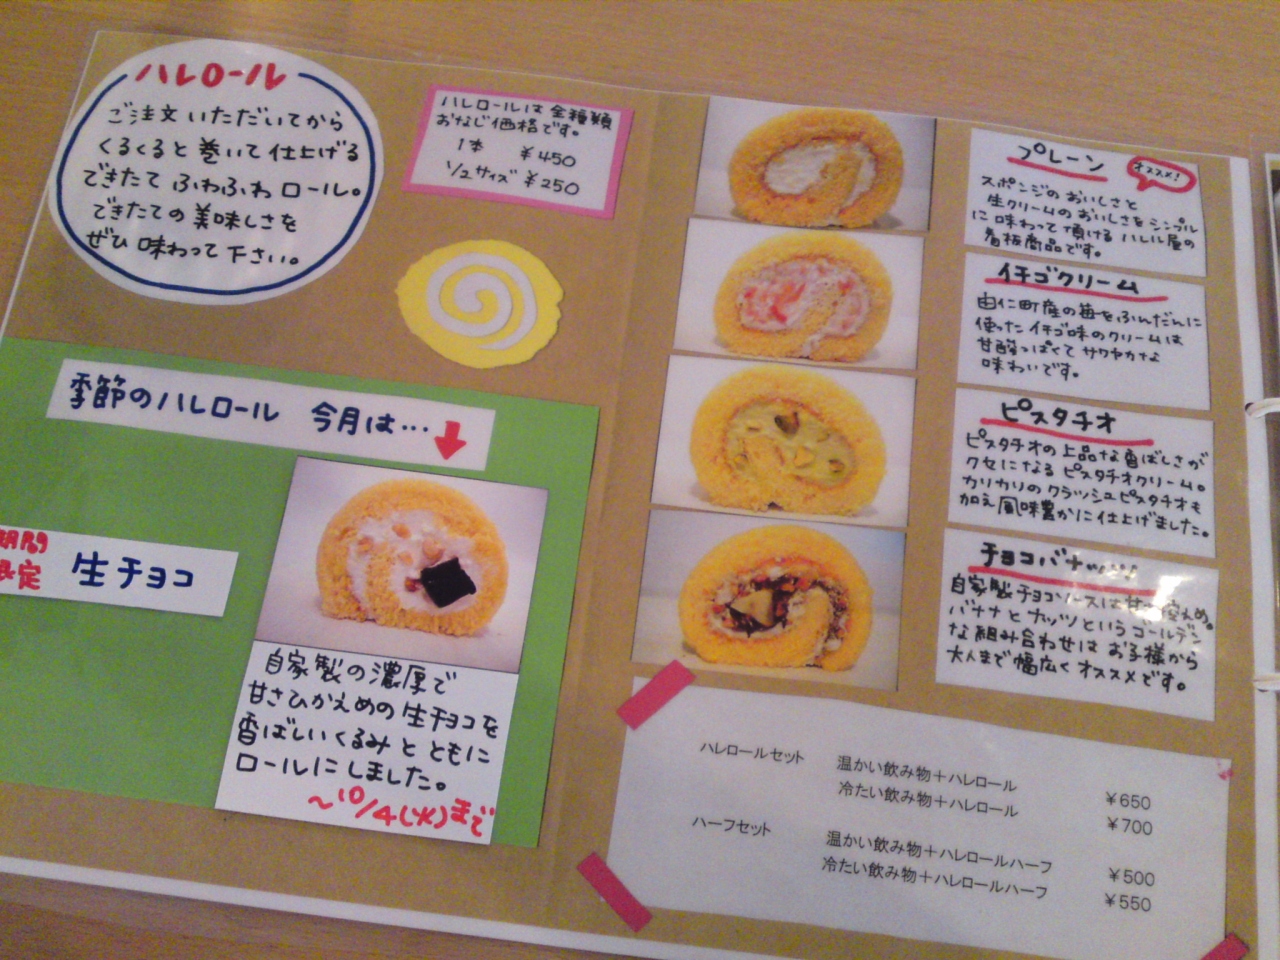 ハレロール
ご注文いただいてから
くるくると巻いて仕上げる
できたてふわふわロール。
できたての美味しさを
ぜひ味わって下さい。
ハレロールは全種類
おなじ価格です。
1本 ¥450
1/2サイズ ¥250
季節のハレロール 今月は…
期間
限定
生チョコ
自家製の濃厚で
甘さひかえめの生チョコを
香ばしいくるみとともに
ロールにしました。
〜10/4(火)まで
プレーン
オススメ!
スポンジのおいしさと
生クリームのおいしさをシンプル
に味わって頂けるハレル屋の
看板商品です。
イチゴクリーム
由仁町産の苺をふんだんに
使ったイチゴ味のクリームは
甘酸っぱくてサワヤカな
味わいです。
ピスタチオ
ピスタチオの上品な香ばしさが
クセになるピスタチオクリーム。
カリカリのクラッシュピスタチオも
加え風味豊かに仕上げました。
チョコバナナッツ
自家製チョコソースは甘さ控えめ。
バナナとナッツというゴールデン
な組み合わせはお子様から
大人まで幅広くオススメです。
ハレロールセット 温かい飲み物＋ハレロール ¥650
冷たい飲み物＋ハレロール ¥700
ハーフセット 温かい飲み物＋ハレロールハーフ ¥500
冷たい飲み物＋ハレロールハーフ ¥550